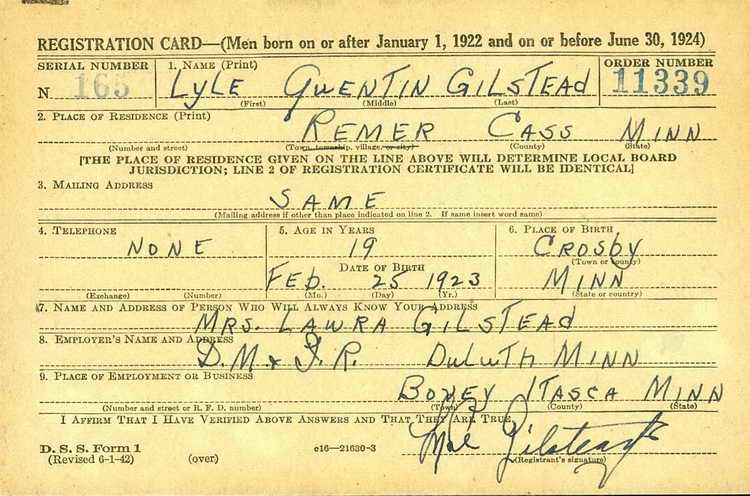 REGISTRATION CARD—(Men born on or after January 1, 1922 and on or before June 30, 1924)
SERIAL NUMBER 1. NAME (Print) ORDER NUMBER
N 165 LYLE QUENTIN GILSTEAD 11339
(First) (Middle) (Last)
2. PLACE OF RESIDENCE (Print)
REMER CASS MINN
(Number and street) (Town, township, village, or city) (County) (State)
[THE PLACE OF RESIDENCE GIVEN ON THE LINE ABOVE WILL DETERMINE LOCAL BOARD
JURISDICTION; LINE 2 OF REGISTRATION CERTIFICATE WILL BE IDENTICAL]
3. MAILING ADDRESS
SAME
(Mailing address if other than place indicated on line 2. If same insert word same)
4. TELEPHONE 5. AGE IN YEARS 6. PLACE OF BIRTH
NONE 19 CROSBY
DATE OF BIRTH (Town or county)
FEB. 25 1923 MINN
(Exchange) (Number) (Mo.) (Day) (Yr.) (State or country)
7. NAME AND ADDRESS OF PERSON WHO WILL ALWAYS KNOW YOUR ADDRESS
MRS. LAWRA GILSTEAD
8. EMPLOYER'S NAME AND ADDRESS
D. M. & I. R. DULUTH MINN
9. PLACE OF EMPLOYMENT OR BUSINESS
BOVEY ITASCA MINN
(Number and street or R. F. D. number) (Town) (County) (State)
I AFFIRM THAT I HAVE VERIFIED ABOVE ANSWERS AND THAT THEY ARE TRUE.
D. S. S. Form 1 c16—21630-3 Gilstead
(Revised 6-1-42) (over) (Registrant's signature)